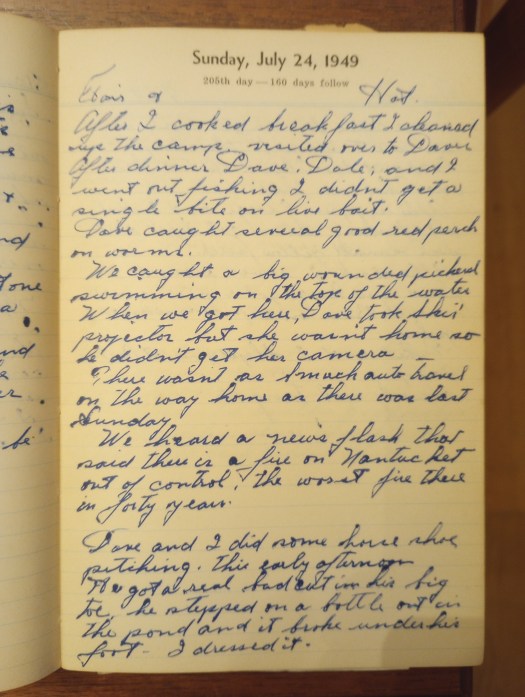 Sunday, July 24, 1949
205th day — 160 days follow
Fair & Hot.
After I cooked breakfast I cleaned
up the camp, visited over to Daves
After dinner Dave, Dale, and I
went out fishing I didn't get a
single bite on live bait.
Dave caught several good red perch
on worms.
We caught a big wounded pickerel
swimming on the top of the water
When we got here, Dave took Ski's
projector but she wasn't home so
he didn't get her camera
There wasn't as much auto travel
on the way home as there was last
Sunday
We heard a news flash that
said there is a fire on Nantucket
out of control, the worst fire there
in forty years.
Dave and I did some horse shoe
pitching. this early afternoon
He got a real bad cut in his big
toe, he stepped on a bottle out in
the pond and it broke under his
foot - I dressed it.